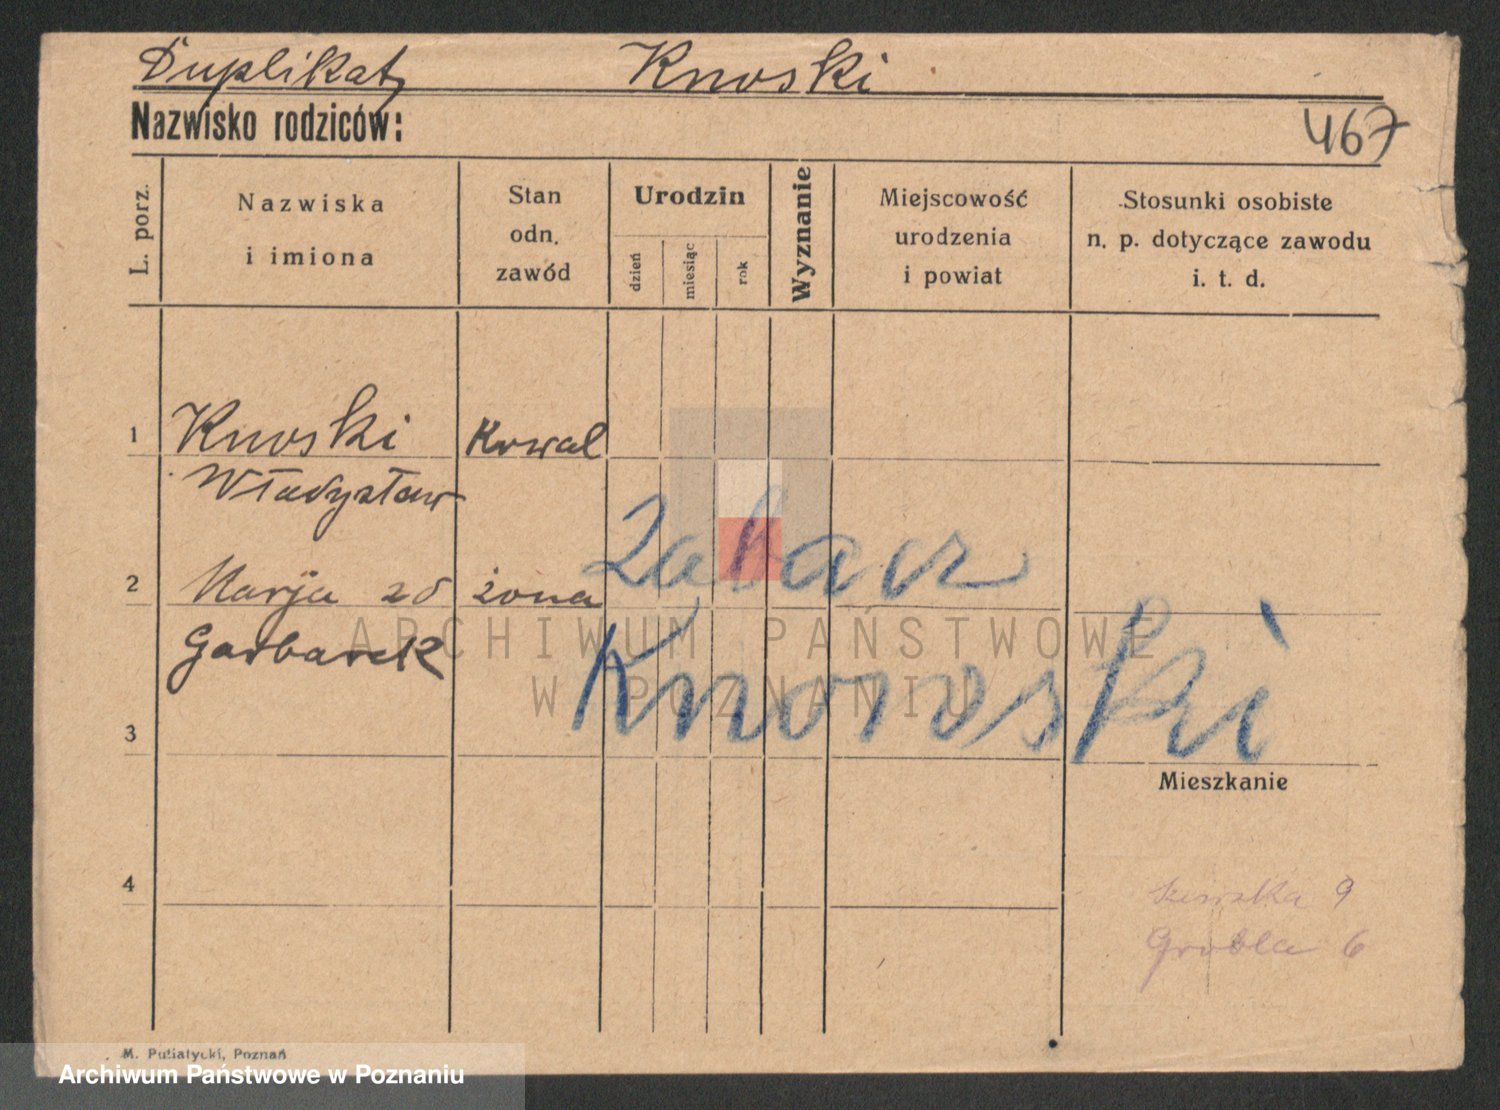 Duplikat Knoski
Nazwisko rodziców:
467
L. porz.
Nazwiska
i imiona
Stan
odn.
zawód
Urodzin
dzień
miesiąc
rok
Wyznanie
Miejscowość
urodzenia
i powiat
Stosunki osobiste
n. p. dotyczące zawodu
i. t. d.
1 Knoski Kowal
Władysław
Zobacz
2 Marja zd żona
Garbarek
Knoroski
3
Mieszkanie
4
9
Grobla 6
M. Putiatycki, Poznań
ARCHIWUM PAŃSTWOWE
W POZNANIU
Archiwum Państwowe w Poznaniu